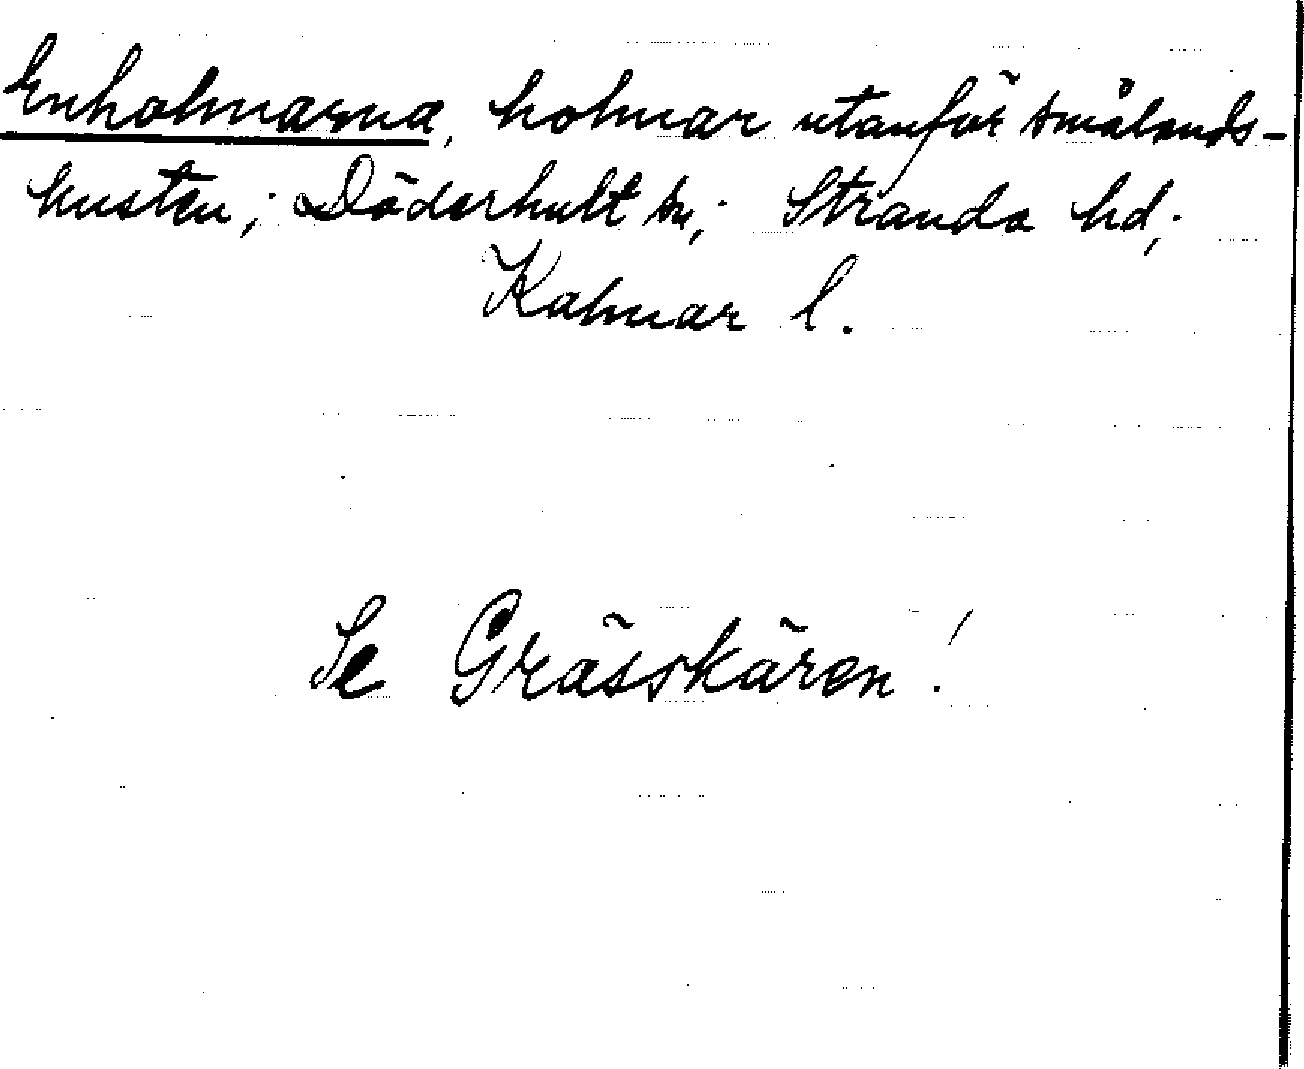 Enholmarna, holmar utanför smålands-
kusten; Döderhult sn; Stranda hd;
Kalmar l.
Se Grässkären!